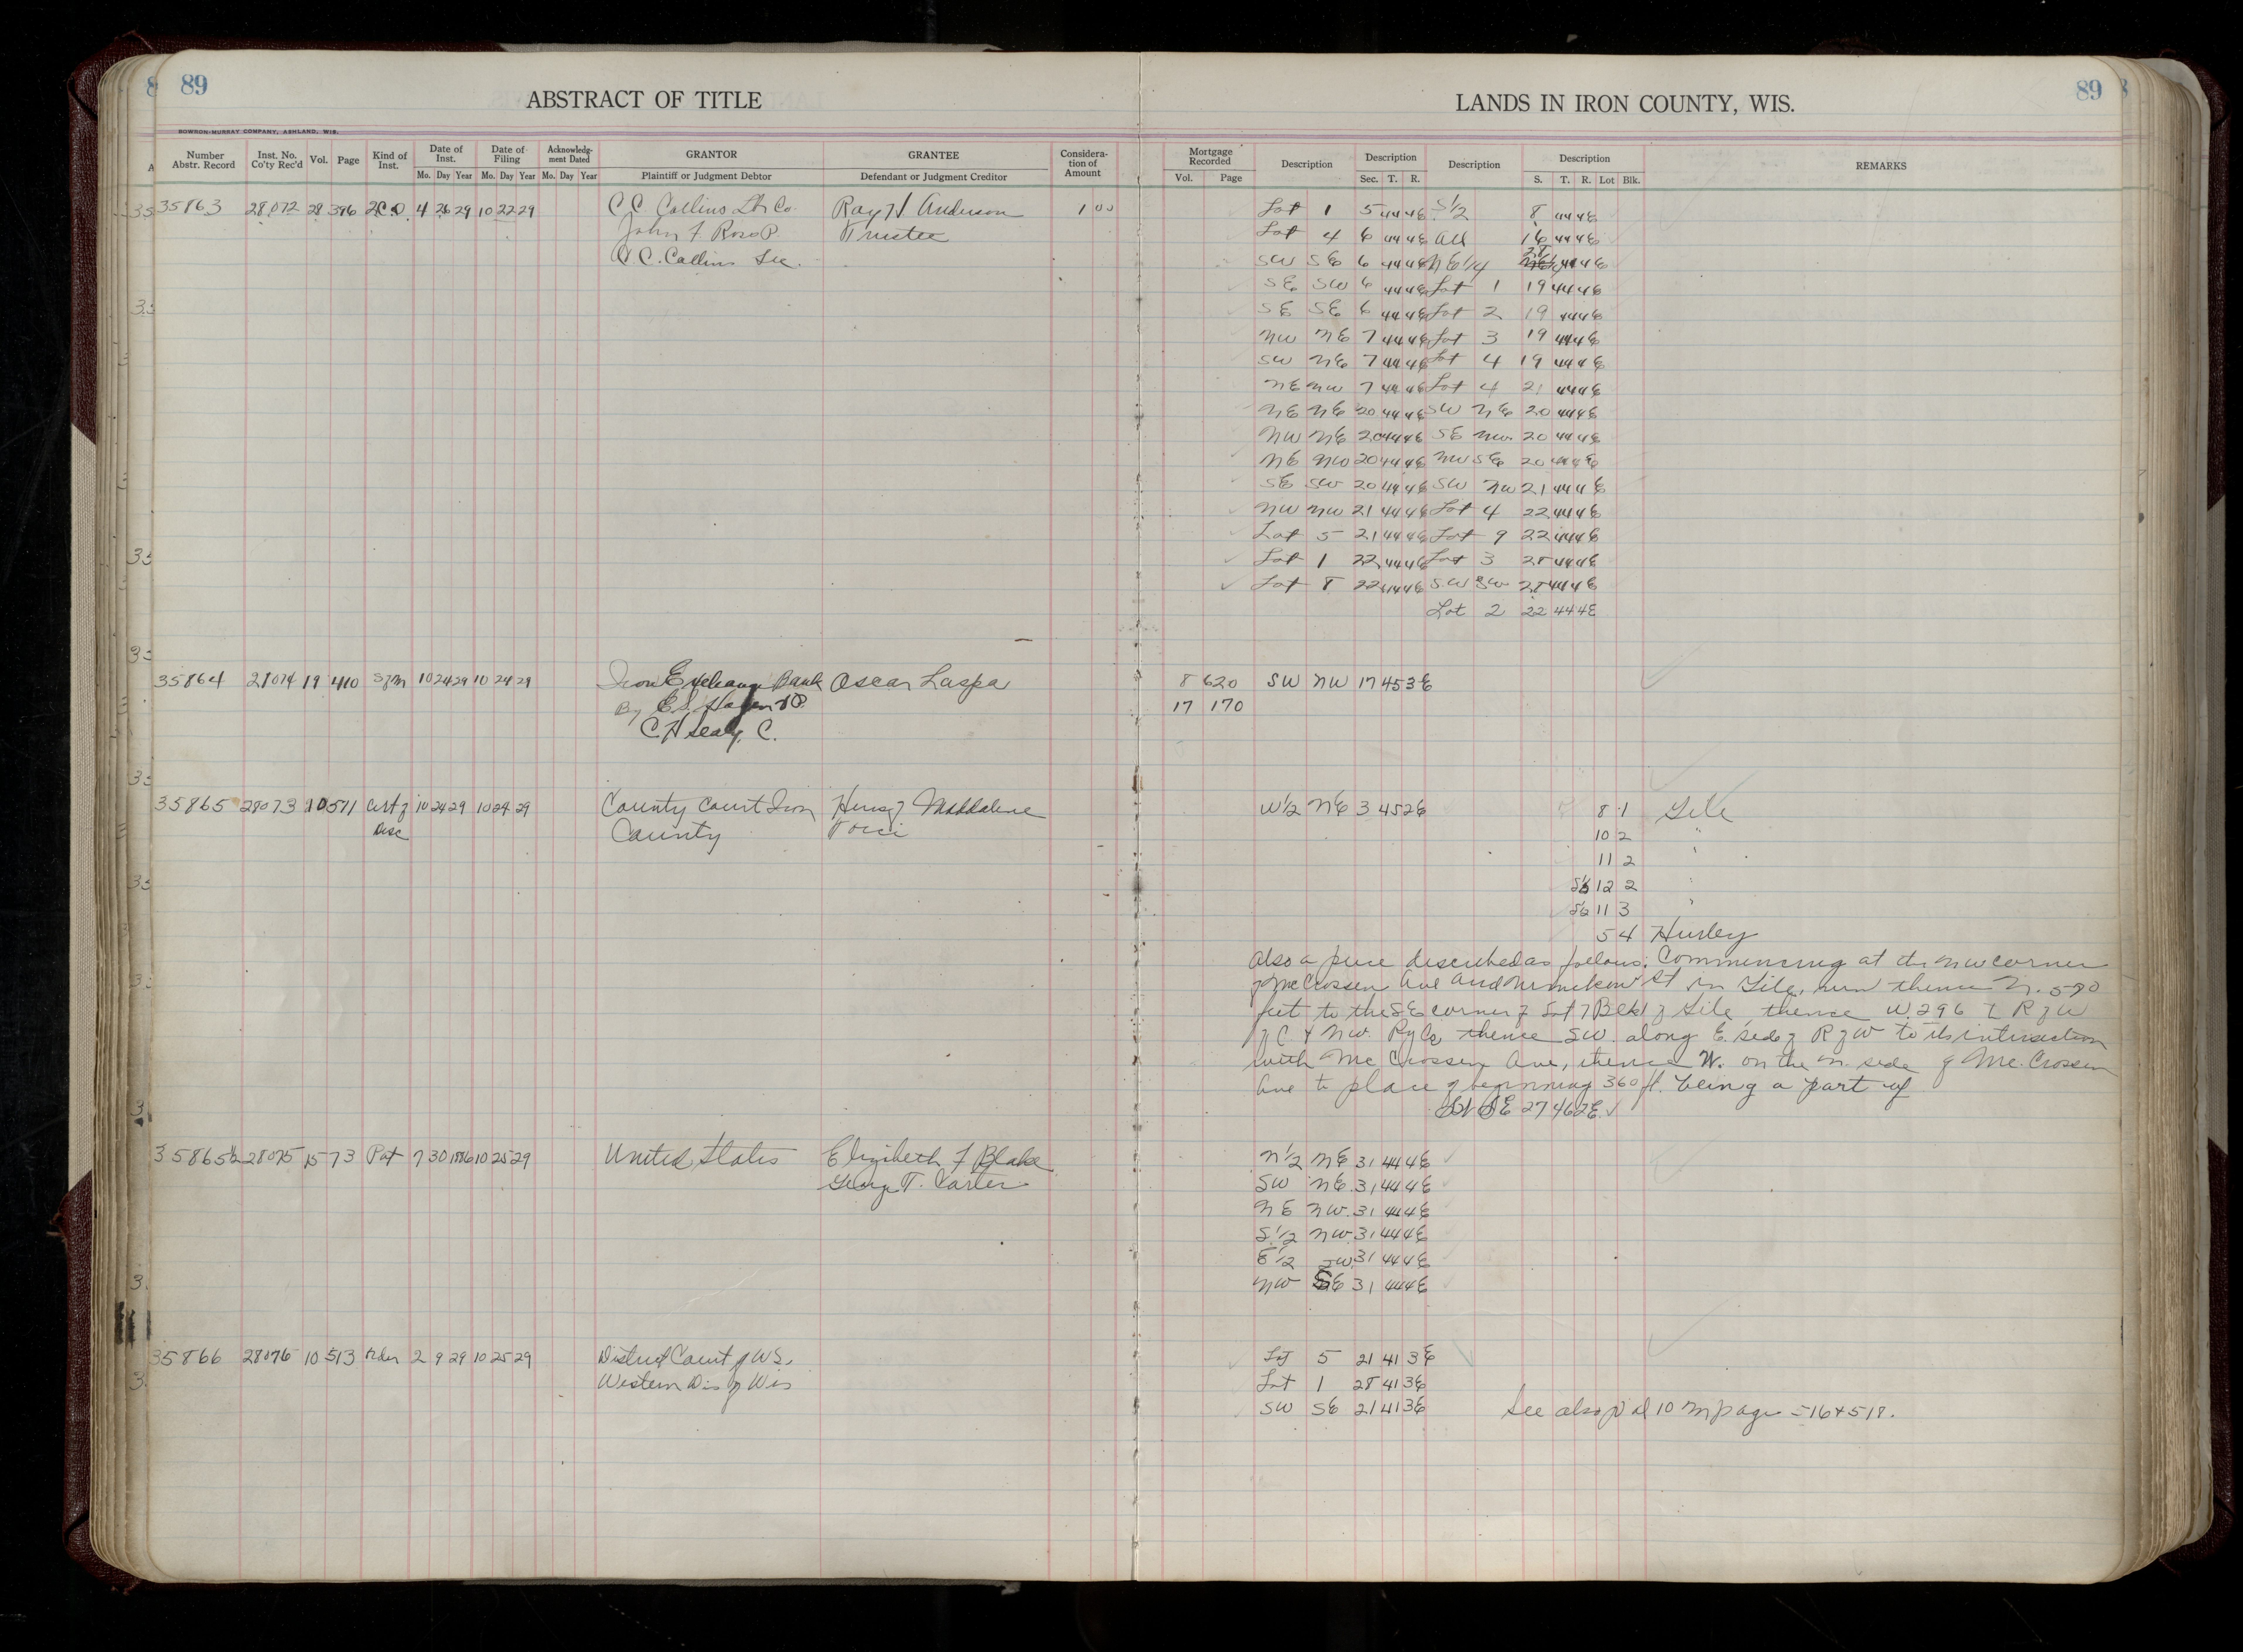 89
ABSTRACT OF TITLE
BOWRON-MURRAY COMPANY, ASHLAND, WIS.
Number Abstr. Record Inst. No. Co'ty Rec'd Vol. Page Kind of Inst. Date of Inst. Date of Filing Acknowledg-ment Dated GRANTOR GRANTEE Considera-tion of Amount
Mo. Day Year Mo. Day Year Mo. Day Year Plaintiff or Judgment Debtor Defendant or Judgment Creditor
35863 28072 28 396 2CD 4 26 29 10 22 29 C.C. Collins Lbr Co. Ray H Anderson 1 00
John F. Ross P Trustee
A.C. Collins Sec.
35864 28074 19 410 10 24 29 10 24 29 Iron Exchange Bank Oscar Laspa
By E.S. Hagen VP.
C H Sealy, C.
35865 28073 10 511 Cert of 10 24 29 10 24 29 County Court Iron Heirs of Maddalene
Desc County Tocci
35865½ 28075 15 73 Pat 7 30 1886 10 25 29 United States Elizabeth F Blake
George T. Carter
35866 28076 10 513 Order 2 9 29 10 25 29 District Court of US.
Western Dis of Wis
LANDS IN IRON COUNTY, WIS.
89
Mortgage Recorded Description Description Description Description REMARKS
Vol. Page Sec. T. R. S. T. R. Lot Blk.
Lot 1 5 44 4E S1/2 8 44 4E
Lot 4 6 44 4E All 16 44 4E
SW SE 6 44 4E NE1/4 44 4E
SE SW 6 44 4E Lot 1 19 44 4E
SE SE 6 44 4E Lot 2 19 44 4E
NW NE 7 44 4E Lot 3 19 44 4E
SW NE 7 44 4E Lot 4 19 44 4E
NE NW 7 44 4E Lot 4 21 44 4E
NE NE 20 44 4E SW NE 20 44 4E
NW NE 20 44 4E SE NW. 20 44 4E
NE NW 20 44 4E NW SE 20 44 4E
SE SW 20 44 4E SW NW 21 44 4E
NW NW 21 44 4E Lot 4 22 44 4E
Lot 5 21 44 4E Lot 9 22 44 4E
Lot 1 22 44 4E Lot 3 28 44 4E
Lot 8 22 44 4E SW SW 28 44 4E
Lot 2 22 44 4E
8 620 SW NW 17 45 3E
17 170
W1/2 NE 3 45 2E 8 1 Gile
10 2 "
11 2 "
12 2 "
S½ 11 3 "
5 4 Hurley
Also a piece described as follows. Commencing at the NW corner
of McCrossen Ave and St in Gile, run thence N. 590
feet to the SE corner of Lot 7 Blk 1 of Gile thence W. 296 to R of W
of C & NW. Ry Co, thence SW. along E. side of R of W to its intersection
with Mc Crossen Ave, thence W. on the N. side of Mc. Crossen
Ave to place of beginning 360 ft. being a part of
SE 27 46 2E.
N1/2 NE 31 44 4E
SW NE. 31 44 4E
NE NW. 31 44 4E
S.1/2 NW. 31 44 4E
E1/2 SW. 31 44 4E
NW SE 31 44 4E
Lot 5 21 41 3E
Lot 1 28 41 3E
SW SE 21 41 3E See also Vol 10 M page 516 & 518.